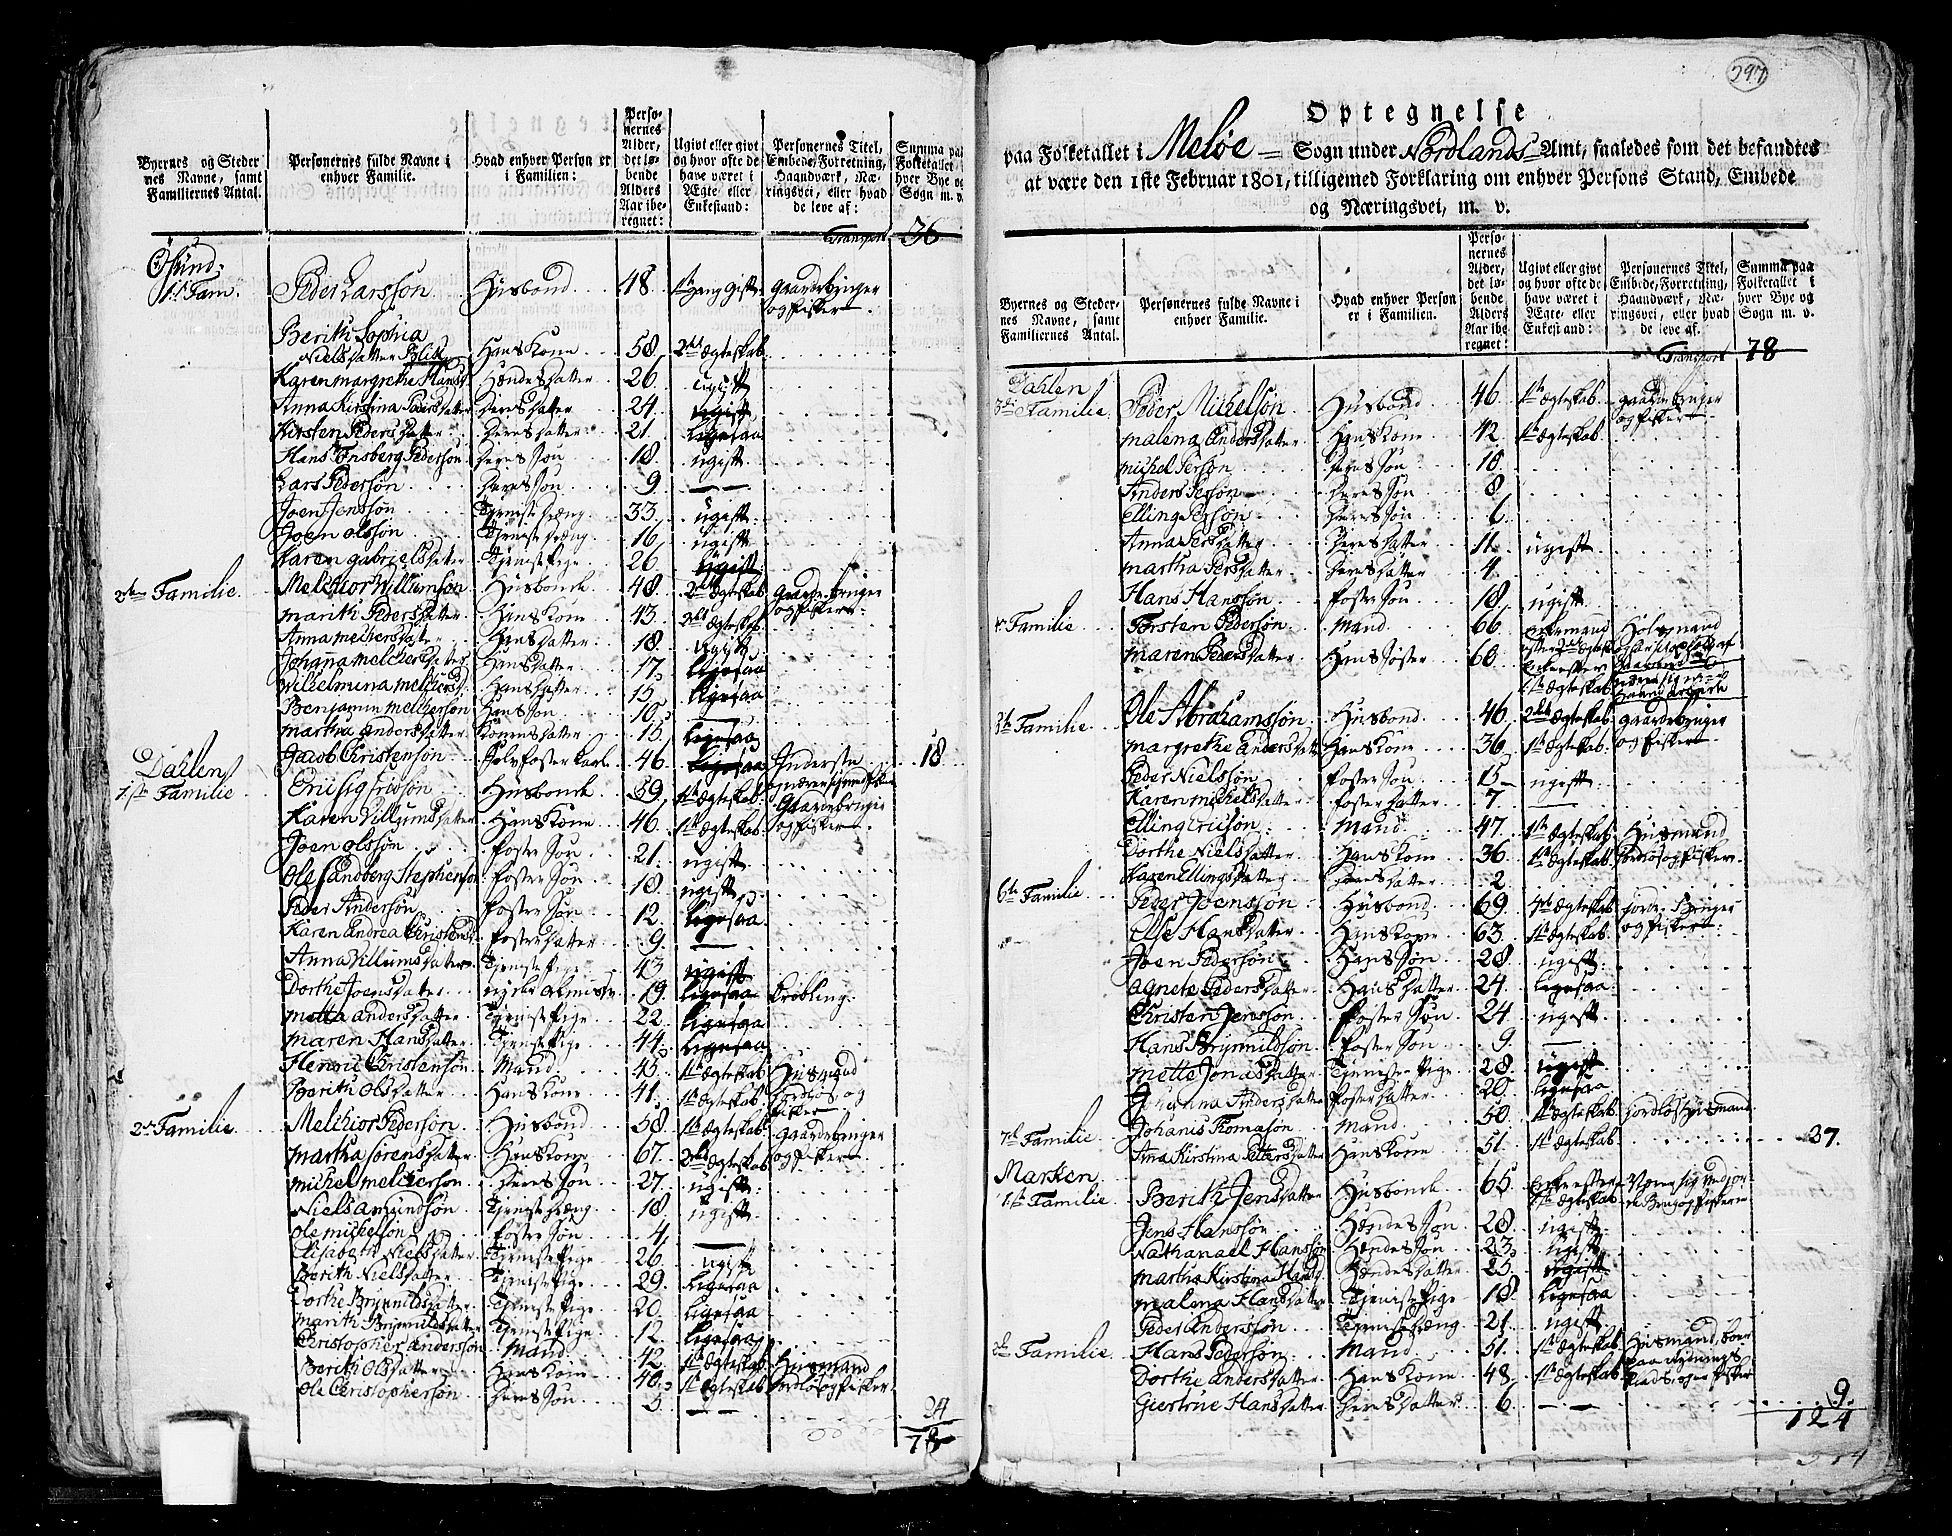 Byernes og Steder
nes Navne, samt
Familiernes Antal.
Personernes fulde Navne i
enhver Familie.
Hvad enhver Person er
i Familien:
Perso-
nernes
Alder,
det lø-
bende
Alders
Aar ibe-
regnet:
Ugivt eller givt
og hvor ofte de
have været i
Ægte eller
Enkestand:
Personernes Titel,
Embede, Forretning,
Haandværk, Næ-
ringsvei, eller hvad
de leve af:
Summa paa
Folketallet i
hver Bye og
Sogn m. v.
Transport 36
1st Fam. Peder Larssøn Huusbond 48 1st gang gift gaardbruger
og fisker
Berith Sophia
Nielsdatter Hans Kone 58 2det Ægteskab
Karen margrethe Hansd. Hendes datter 26 ugift
Anna Kirstina Pedersdatter Deres datter 24 ugift
Kirsten Pedersdatter Deres datter 21 ligesaa
Hans Pederssøn Deres søn 18 ugift
Lars Pedersøn Deres søn 9 —
Joen Jenssøn Tjeneste dreng 33 ugift
Joen olssøn Tjeneste dreng 16 ugift
Karen gabrielsdatter Tjeneste Pige 26 ugift
2den Familie Melchior Willumsøn Huusbonde 48 2det Ægteskab Gaardbruger
marith Pedersdatter Hans Kone 43 2det Ægteskab og fisker
Anna melchersdatter Hans datter 18 ugift
Johanna melchersdatter Hans datter 17 ligesaa
Wilhelmina melchersd. Hans datter 15 ligesaa
Benjamin melchersøn Hans søn 10 —
martha andersdatter Konens datter 15 ligesaa
Jacob Christensøn 46 ligesaa Inderste 18
Dahlen
1ste Familie Huusbonde 59 1ste Ægteskab Gaardbruger
Karen Villumsdatter Hans Kone 46 1ste Ægteskab og fisker
Joen olssøn foster søn 21 ugift
Ole Sandberg Stephensøn foster søn 18 ugift
Peder Andersøn foster søn 12 ligesaa
Karen Andrea Christensd. foster datter 9 —
Anna Villumsdatter Tjeneste Pige 43 ugift
Dorthe Joensdatter 19 ligesaa krøbling
metta andersdatter Tjeneste Pige 22 ligesaa
maren Hansdatter Tjeneste Pige 44 ligesaa
Henric Christensøn Mand 45 1ste Ægteskab Huusmand
Berith olsdatter Hans Kone 41 1ste Ægteskab jordløs og
fisker
2den Familie Melchior Pedersøn Huusbond 58 1ste Ægteskab Gaardbruger
martha sørensdatter Hans Kone 67 2det Ægteskab og fisker
michel melchersøn Deres søn 27 ugift
Niels amundsøn Tjeneste dreng 18 ugift
ole michelsøn foster søn 4 —
Elisabeth Nielsdatter Tjeneste Pige 26 ugift
Berith Nielsdatter Tjeneste Pige 29 ligesaa
Dorthe Brynnildsdatter Tjeneste Pige 20 ligesaa
Marith Brynnildsdatter Tjeneste Pige 12 ligesaa
Christopher anderssøn Mand 42 1ste Ægteskab Huusmand
Berith olsdatter Hans Kone 40 1ste Ægteskab jordløs og fisker
Ole Christophersøn Deres søn 5 — —
24
78
297
Optegnelse
paa Folketallet i Meløe Sogn under Nordlands Amt, saaledes som det befandtes
at være den 1ste Februar 1801, tilligemed Forklaring om enhver Persons Stand, Embede
og Næringsvei, m. v.
Byernes og Steder-
nes Navne, samt
Familiernes Antal.
Personernes fulde Navne i
enhver Familie.
Hvad enhver Person
er i Familien.
Perso-
nernes
Alder,
det lø-
bende
Alders
Aar ibe-
regnet:
Ugivt eller givt
og hvor ofte de
have været i
Ægte- eller
Enkestand:
Personernes Titel,
Embede, Forretning,
Haandværk, Næ-
ringsvei, eller hvad
de leve af.
Summa paa
Folketallet i
hver Bye og
Sogn m. v.
Transport 78
Dahlen
3die Familie Peder Michelsøn Huusbond 46 1ste Ægteskab gaardbruger
og fisker
malena Andersdatter Hans Kone 42 1ste Ægteskab
michel Persøn Deres søn 10
Anders Persøn Deres søn 8
elling Persøn Deres søn 6
Anna Persdatter Deres datter 11 ugift
martha Persdatter Deres datter 4
Hans Hanssøn foster søn 18 ugift
4de Familie Torsten Pedersøn Mand 66 Enkemand
maren Pedersdatter Hans søster 60
5te Familie Ole Abrahamssøn Huusbond 46 2det Ægteskab gaardbruger
margrethe Andersdatter Hans Kone 36 1ste Ægteskab og fisker
Peder Nielssøn foster søn 15 ugift
Karen michelsdatter foster datter 7 —
Elling Ericsøn Mand 47 1ste Ægteskab Huusmand
Dorthe Nielsdatter Hans Kone 36 1ste Ægteskab jordløs og fisker
Karen Ellingsdatter Deres datter 2
6te Familie Peder Joenssøn Huusbond 69 Ægteskab jordbruger
Else Hansdatter Hans Kone 63 1ste Ægteskab og fisker
Joen Pedersøn Hans søn 28 ugift
agnete Pedersdatter Hans datter 24 ligesaa
Christen Jenssøn foster søn 24 ugift
Hans Brynnildsøn foster søn 9 —
mette Jonasdatter Tjeneste Pige 28 ugift
Johanna Andersdatter foster datter 20 ligesaa
7de Familie Johanis Thomasøn Mand 50 1ste Ægteskab jordløs Huusmand
Anna Kirstina Pettersdatter Hans Kone 51 1ste Ægteskab 37
Marken
1ste Familie Berith Jensdatter Huusbonde 65
Jens Hanssøn Hendes søn 28 ugift
Nathanael Hanssøn Hendes søn 23 ugift
martha Kirstina Hansd. Hendes datter 25 ugift
malena Hansdatter Tjeneste Pige 18 ligesaa
Peder Anderssøn Tjeneste dreng 21 ugift
2den Familie Hans Pedersøn Mand 51 1ste Ægteskab Huusmand, boer
Dorthe andersdatter Hans Kone 48 1ste Ægteskab paa Rydnings
Plads, og er fisker
Giertrue Hansdatter Deres datter 6 — — 9
124